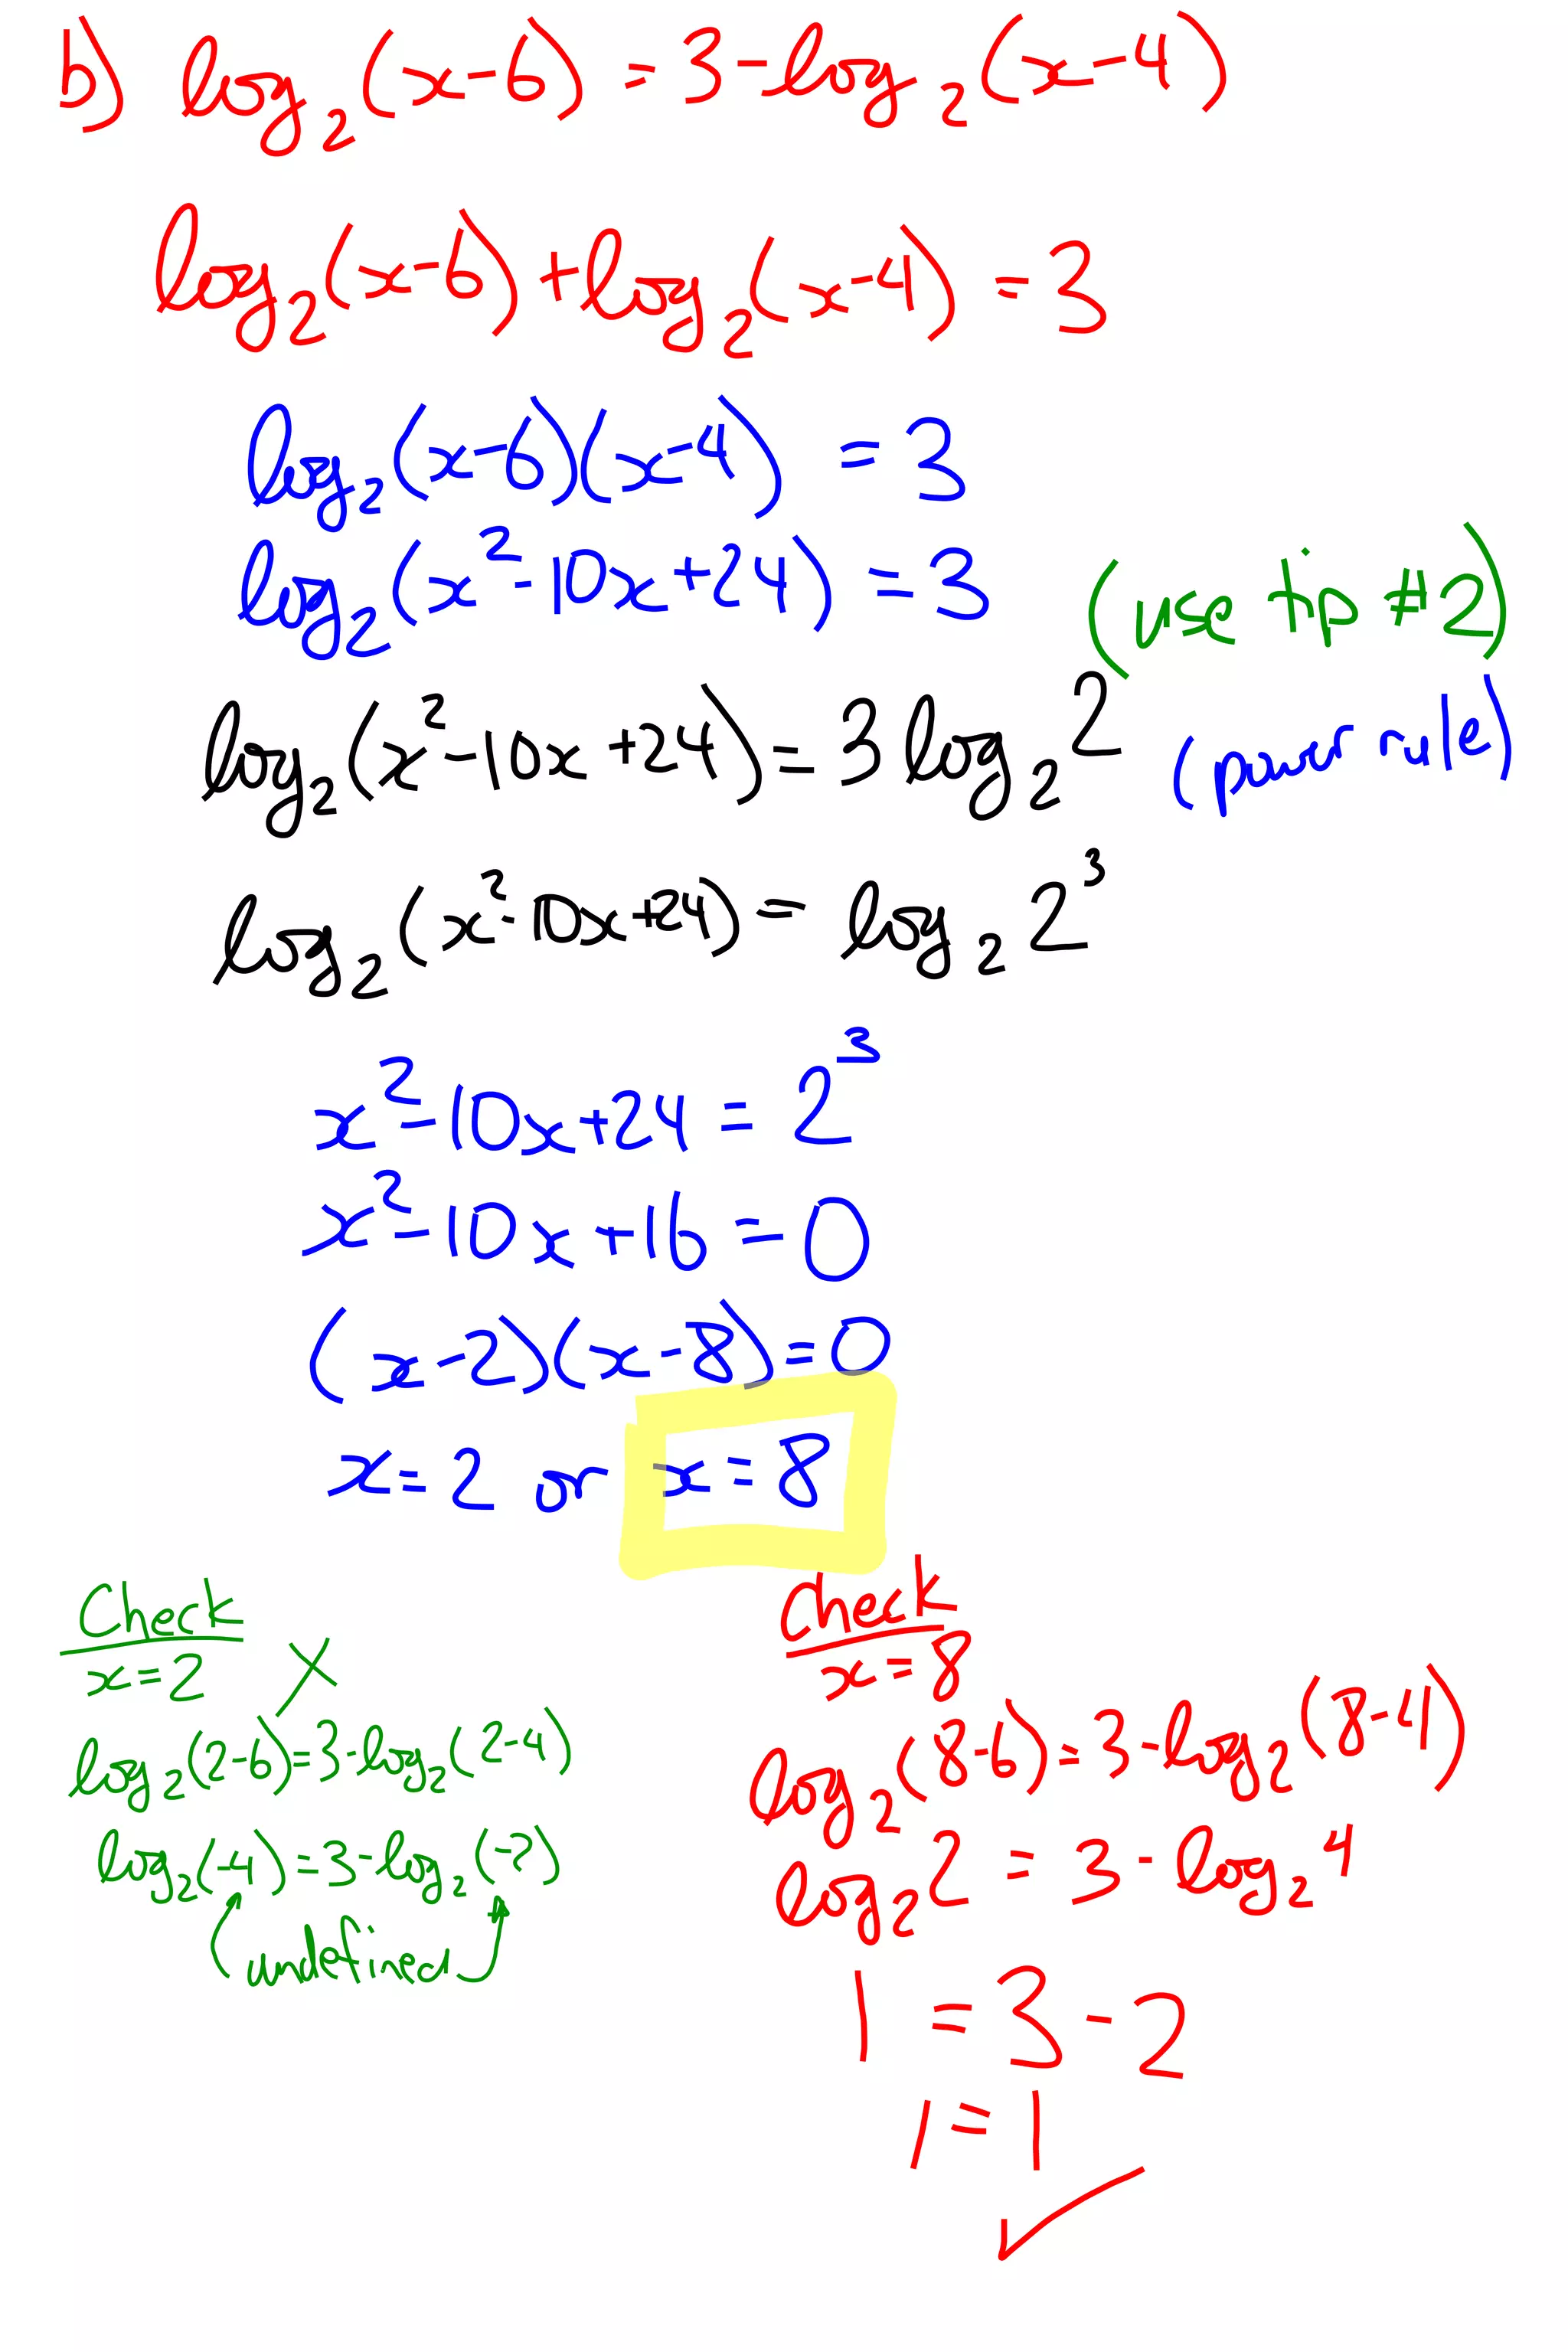 b) log₂(x-6) = 3-log₂(x-4)
log₂(x-6)+log₂(x-4) = 3
log₂(x-6)(x-4) = 3
log₂(x²-10x+24) = 3 (use tip #2)
log₂(x²-10x+24) = 3log₂2 (power rule)
log₂(x²-10x+24) = log₂2³
x²-10x+24 = 2³
x²-10x+16=0
(x-2)(x-8)=0
x=2 or x=8
Check
x=2 X
log₂(2-6)=3-log₂(2-4)
log₂(-4)=3-log₂(-2)
undefined
Check
x=8
log₂(8-6)=3-log₂(8-4)
log₂2 = 3-log₂4
1 = 3-2
1=1
✓